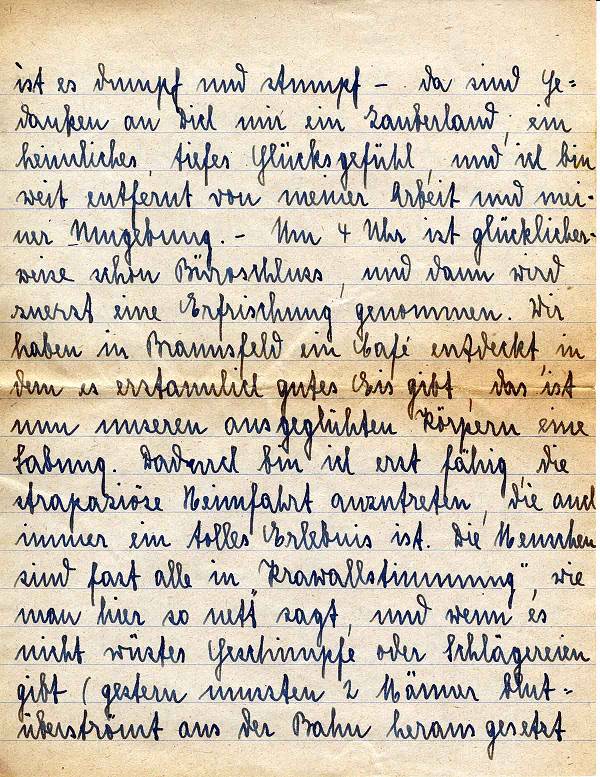 ist es dumpf und stumpf – da sind Ge=
danken an Dich mir ein Zauberland, ein
heimliches, tiefes Glücksgefühl, und ich bin
weit entfernt von meiner Arbeit und mei-
ner Umgebung. – Um 4 Uhr ist glücklicher-
weise schon Büroschluss, und dann wird
zuerst eine Erfrischung genommen. Wir
haben in Braunsfeld ein Café entdeckt, in
dem es erstaunlich gutes Eis gibt, das ist
nun unseren ausgeglühten Körpern eine
Labung. Dadurch bin ich erst fähig, die
strapaziöse Heimfahrt anzutreten, die auch
immer ein tolles Erlebnis ist. Die Menschen
sind fast alle in "Krawallstimmung", wie
man hier so nett sagt, und wenn es
nicht wüstes Geschimpfe oder Schlägereien
gibt (gestern mussten 2 Männer blut=
überströmt aus der Bahn heraus gesetzt